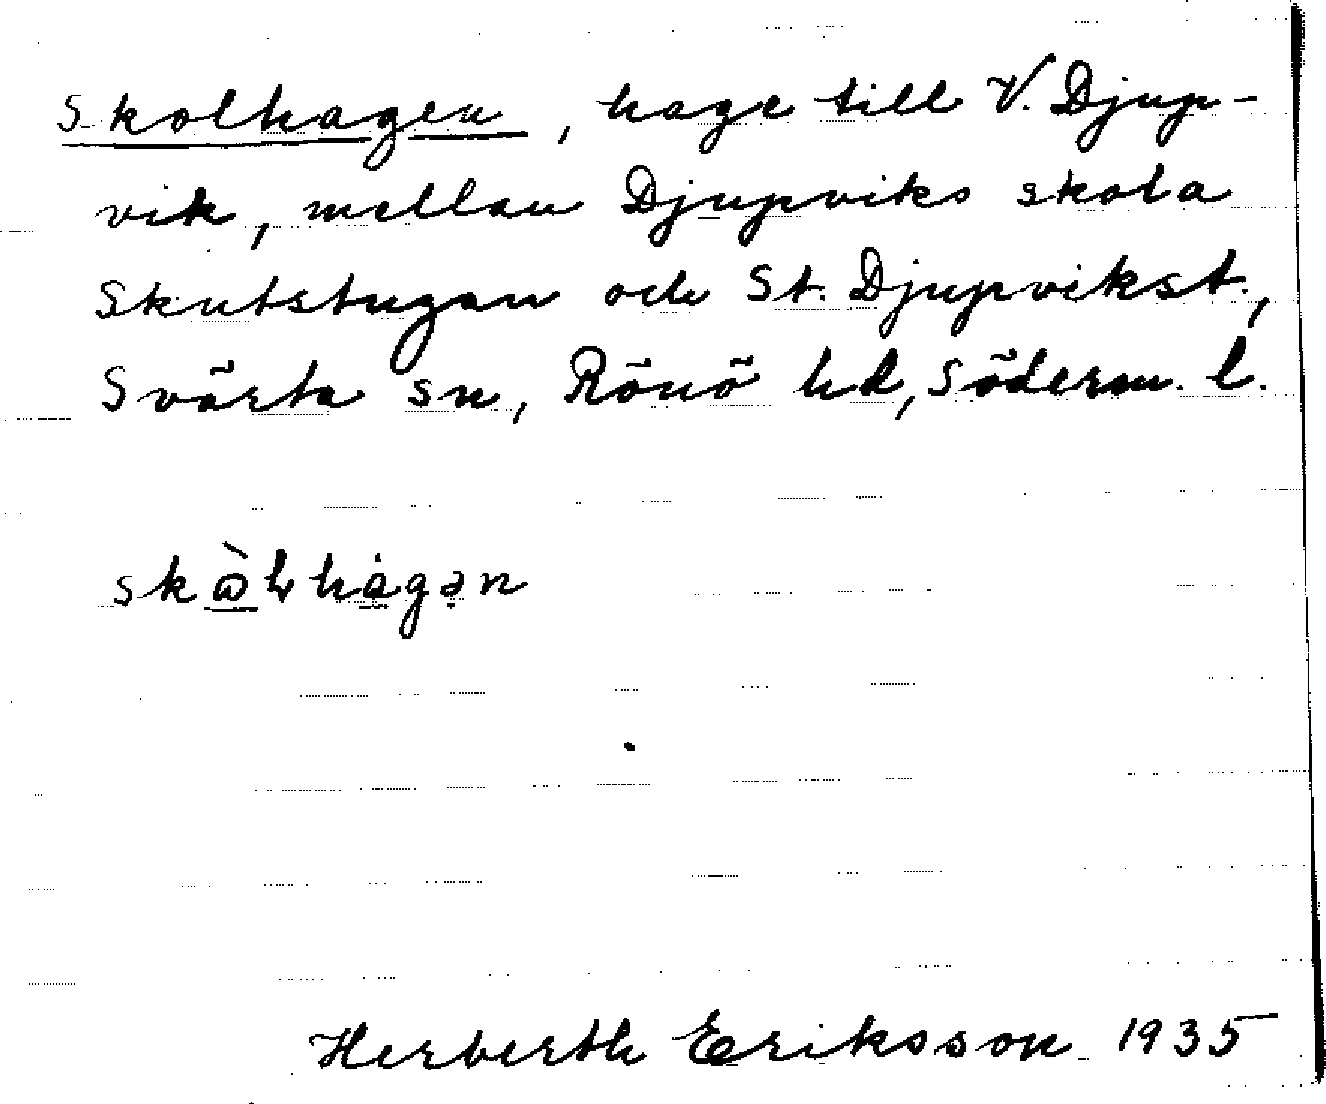 Skolhagen, hage till V. Djup-
vik, mellan Djupviks skola
Skutstugan och St. Djupvikst.,
Svärta sn, Rönö hd, Söderm. l.
skὼɬhàgən
Herberth Eriksson 1935